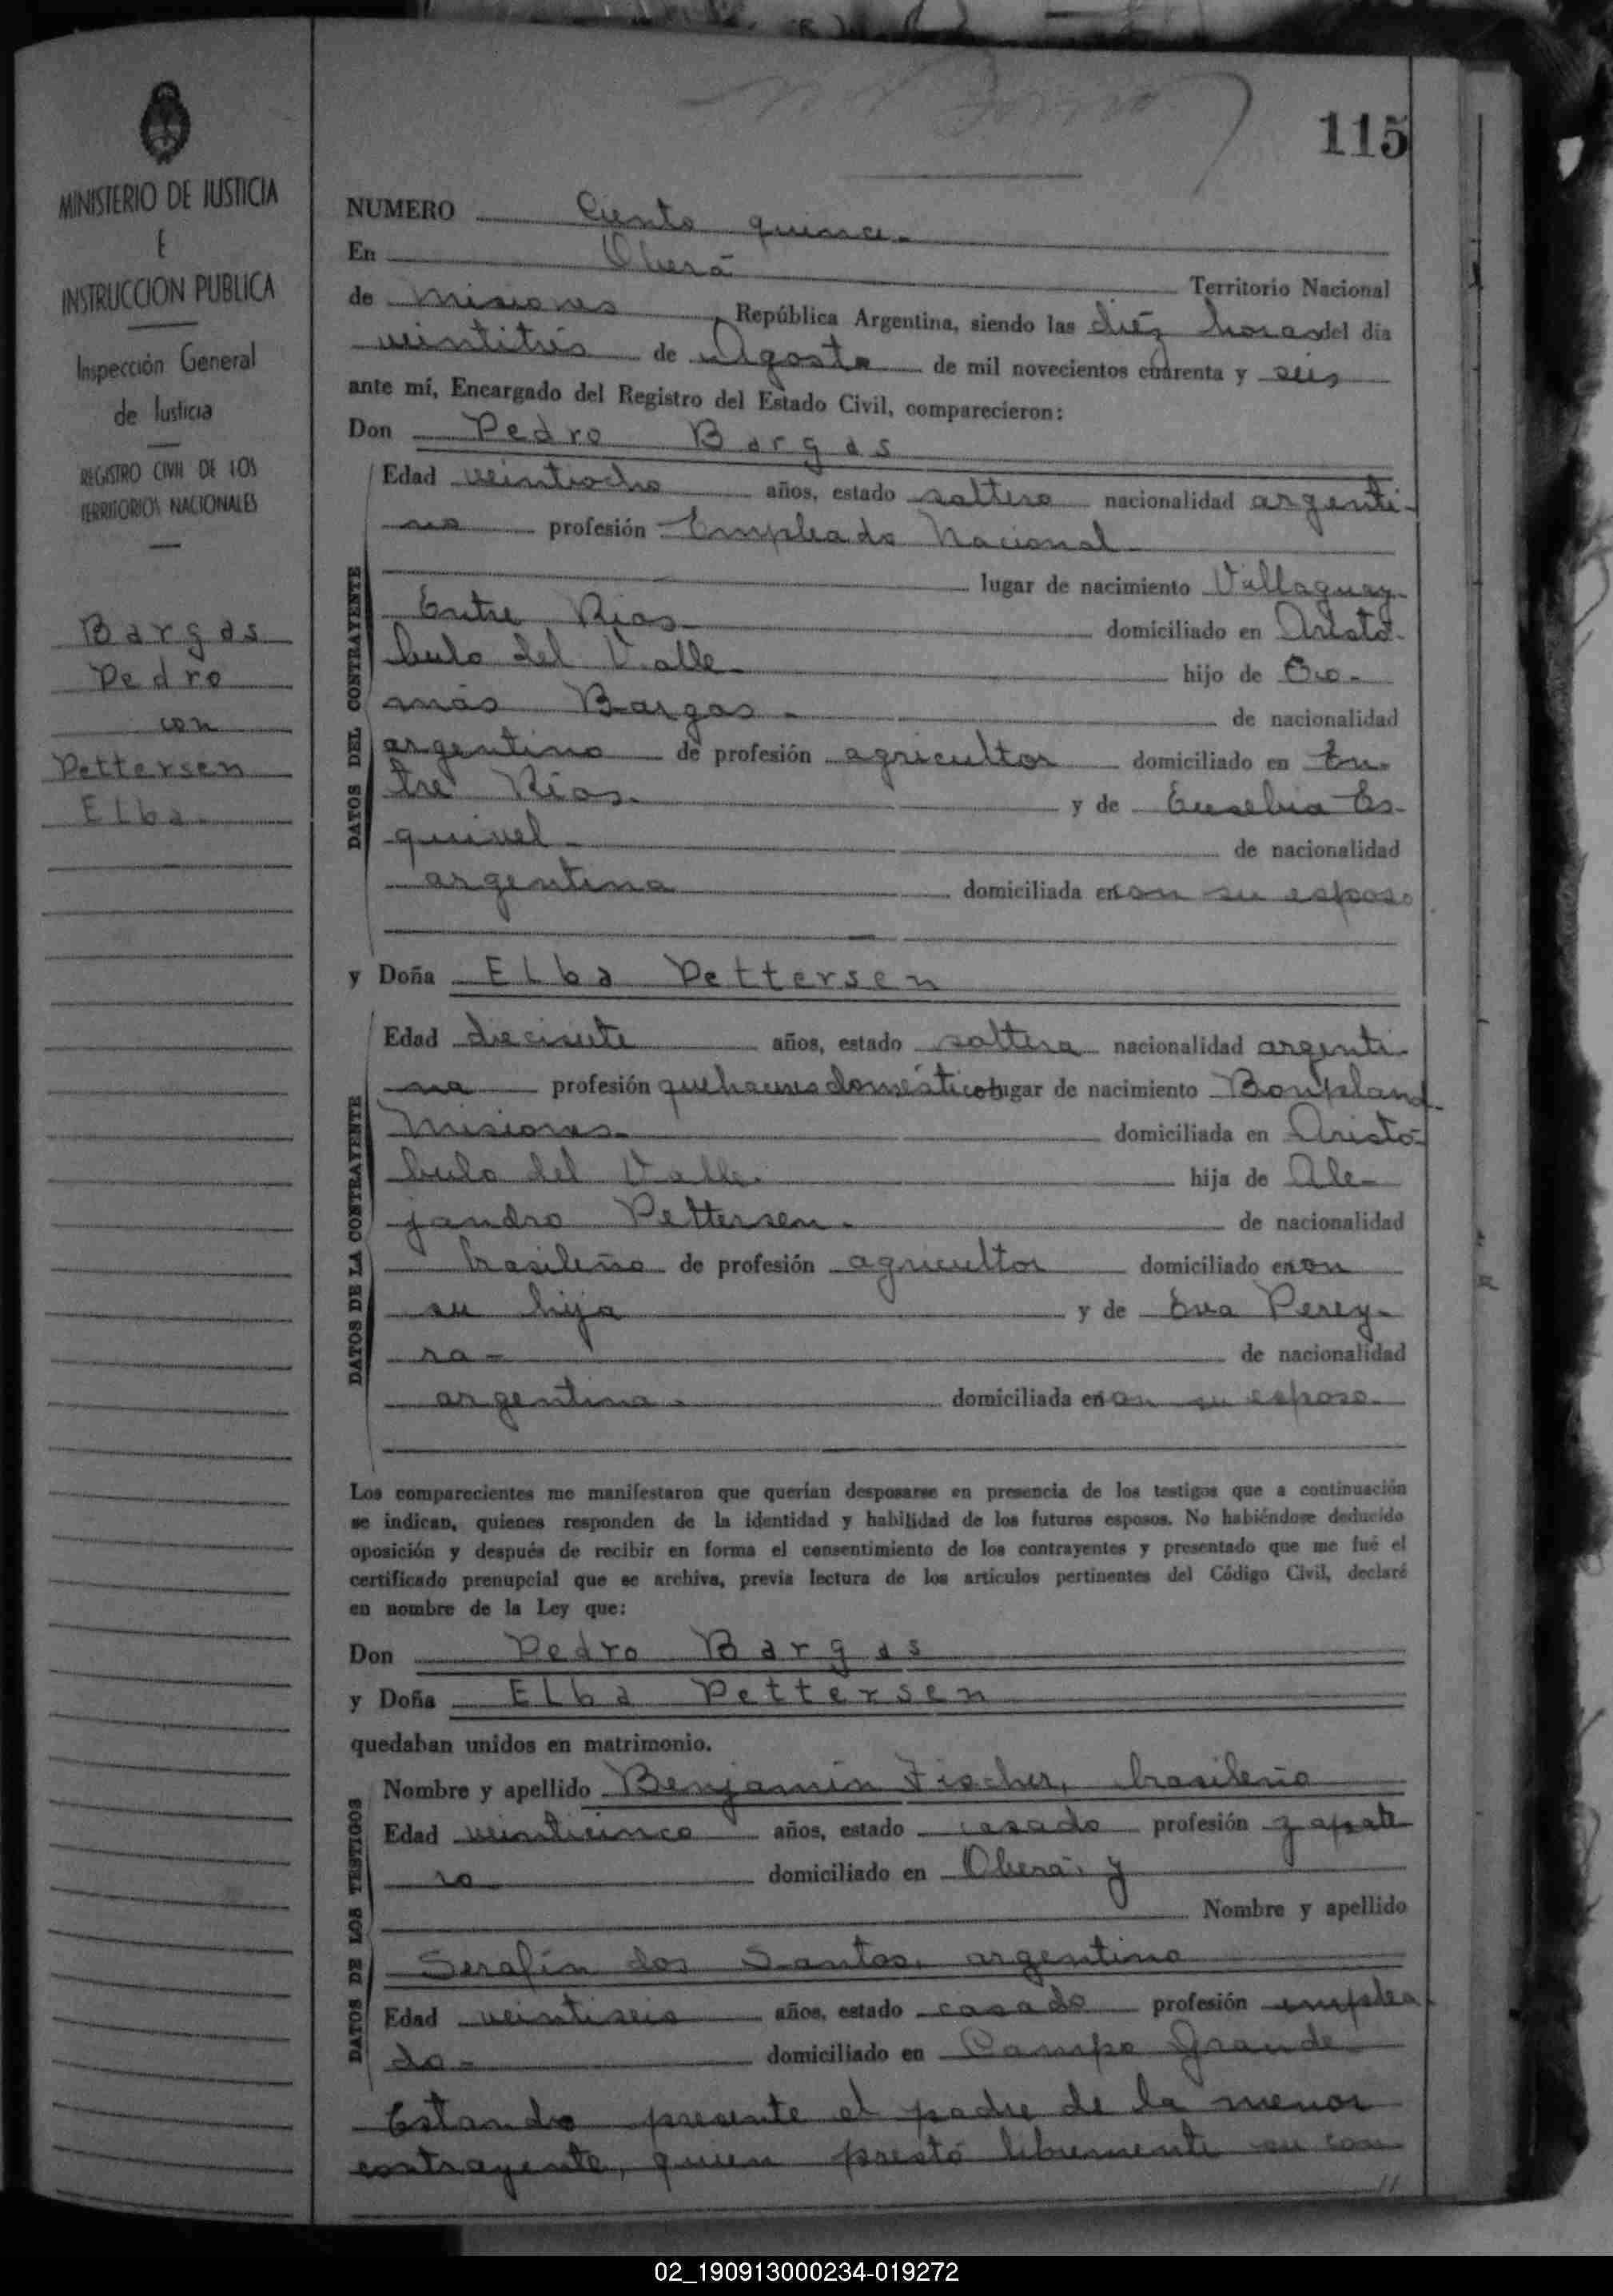 115
MINISTERIO DE JUSTICIA
E
INSTRUCCION PUBLICA
Inspección General
de Justicia
REGISTRO CIVIL DE LOS
TERRITORIOS NACIONALES
Bargas
Pedro
con
Pettersen
Elba.
NUMERO Ciento quince.
En Oberá Territorio Nacional
de Misiones, República Argentina, siendo las diéz horas del día
veintitrés de Agosto de mil novecientos cuarenta y seis
ante mí, Encargado del Registro del Estado Civil, comparecieron:
Don Pedro Bargas
DATOS DEL CONTRAYENTE
Edad veintiocho años, estado soltero nacionalidad argenti-
no profesión Empleado Nacional
lugar de nacimiento Villaguay-
Entre Rios- domiciliado en Aristó-
bulo del Valle- hijo de
más Bargas- de nacionalidad
argentino de profesión agricultor domiciliado en En-
tre Rios- y de Eusebia Es-
quivel- de nacionalidad
argentina domiciliada en con su esposo
y Doña Elba Pettersen
DATOS DE LA CONTRAYENTE
Edad diecisiete años, estado soltera nacionalidad argenti-
na profesión quehaceres domésticos lugar de nacimiento Bonpland-
Misiones- domiciliada en Aristó-
bulo del Valle. hija de Ale-
jandro Pettersen. de nacionalidad
brasileño de profesión agricultor domiciliado en con
su hija y de Eva Perey-
ra- de nacionalidad
argentina- domiciliada en con su esposo-
Los comparecientes me manifestaron que querían desposarse en presencia de los testigos que a continuación
se indican, quienes responden de la identidad y habilidad de los futuros esposos. No habiéndose deducido
oposición y después de recibir en forma el consentimiento de los contrayentes y presentado que me fué el
certificado prenupcial que se archiva, previa lectura de los artículos pertinentes del Código Civil, declaré
en nombre de la Ley que:
Don Pedro Bargas
y Doña Elba Pettersen
quedaban unidos en matrimonio.
DATOS DE LOS TESTIGOS
Nombre y apellido Benjamín Fischer, brasileño
Edad veinticinco años, estado casado profesión zapate
ro domiciliado en Oberá, y
Nombre y apellido
Serafín dos Santos, argentino
Edad veintiseis años, estado casado profesión emplea
do- domiciliado en Campo Grande-
Estando presente el padre de la menor
contrayente, quien prestó libremente su con
//
02_190913000234-019272